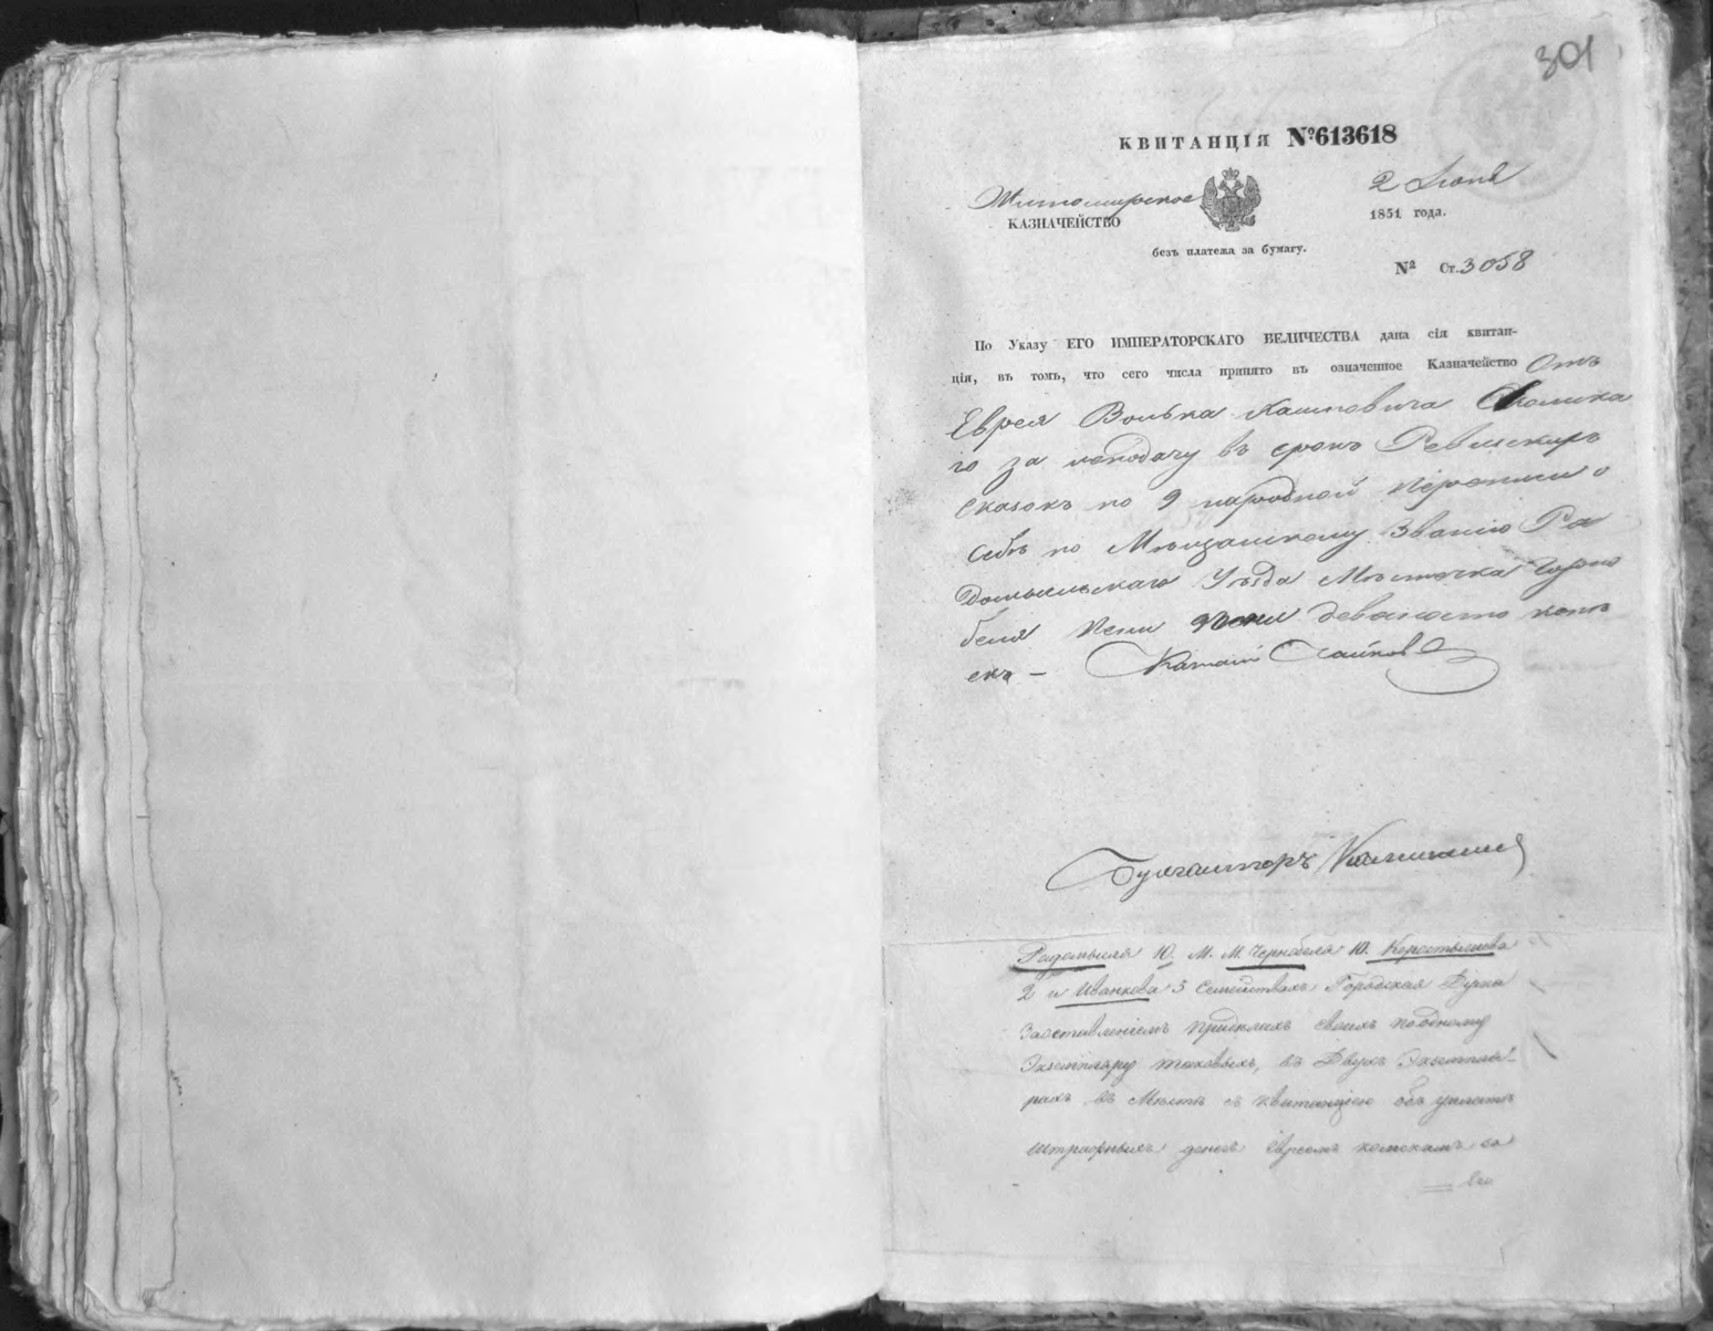 301
КВИТАНЦІЯ №613618
Житомирское
КАЗНАЧЕЙСТВО
2 Іюня
1851 года.
безъ платежа за бумагу.
№ Ст. 3058
По Указу ЕГО ИМПЕРАТОРСКАГО ВЕЛИЧЕСТВА дана сія квитан-
ція, въ томъ, что сего числа принято въ означенное Казначейство Отъ
Еврея Волька
го за неподачу въ срокъ Ревизскихъ
сказокъ по 9 народной переписи о
себѣ по Мѣщанскому Званію Ра
домысльскаго Уѣзда Мѣстечка Черно
беля пени девяносто копѣ
екъ —
Бухгалтеръ
Радомысля 10. М. М. Чернобеля 10. Коростышева
2 и Иванкова 3 Семействахъ Городская Дума
Заоставленіемъ придѣлахъ своихъ поодному
Экземпляру таковыхъ, въ Двухъ Экземпля-
рахъ въ Мѣстѣ съ квитанціею объ уплатѣ
штрафныхъ денегъ Евреемъ за